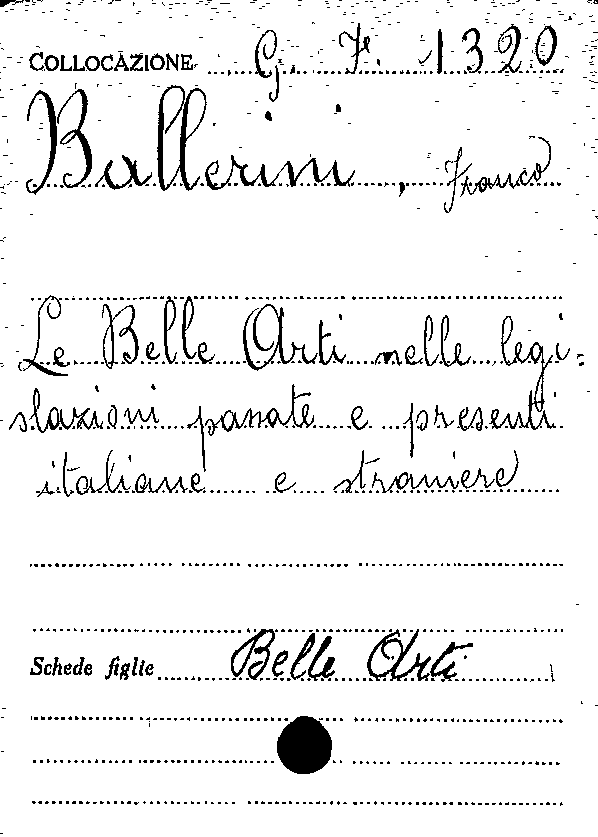 COLLOCAZIONE G. F. 1320
Ballerini, Franco
Le Belle Arti nelle legi=
slazioni passate e presenti
italiane e straniere
Schede figlie Belle Arti